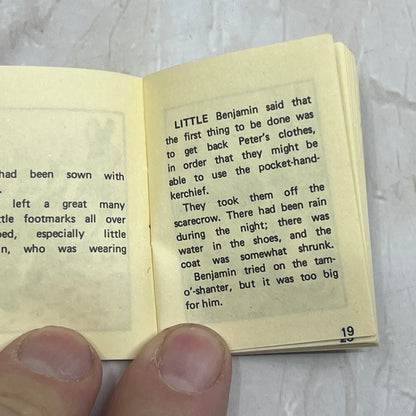 had been sown with
.
left a great many
ttle footmarks all over
bed, especially little
n, who was wearing
LITTLE Benjamin said that
the first thing to be done was
to get back Peter's clothes,
in order that they might be
able to use the pocket-hand-
kerchief.
They took them off the
scarecrow. There had been rain
during the night; there was
water in the shoes, and the
coat was somewhat shrunk.
Benjamin tried on the tam-
o'-shanter, but it was too big
for him.
19